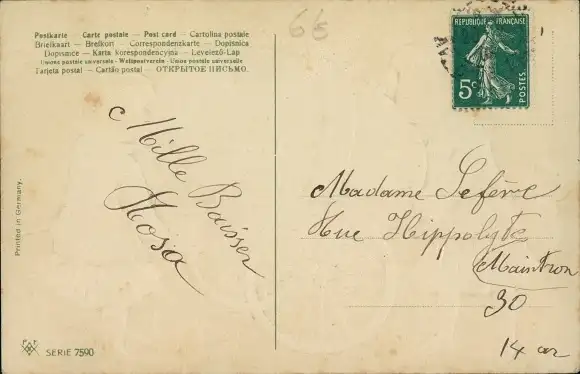 66
Postkarte — Carte postale — Post card — Cartolina postale
Briefkaart — Brefkort — Correspondenzkarte — Dopisnica
Dopisnice — Karta korespondencyjna — Levelező-Lap
Unione postale universale — Weltpostverein — Union postale universelle
Tarjeta postal — Cartão postal — ОТКРЫТОЕ ПИСЬМО.
REPUBLIQUE FRANÇAISE
5c
POSTES
Mille Baisser
Rosa
Madame Lefèvre
Rue Hippolyte
Maintron
30
14 ar
Printed in Germany.
SERIE 7590